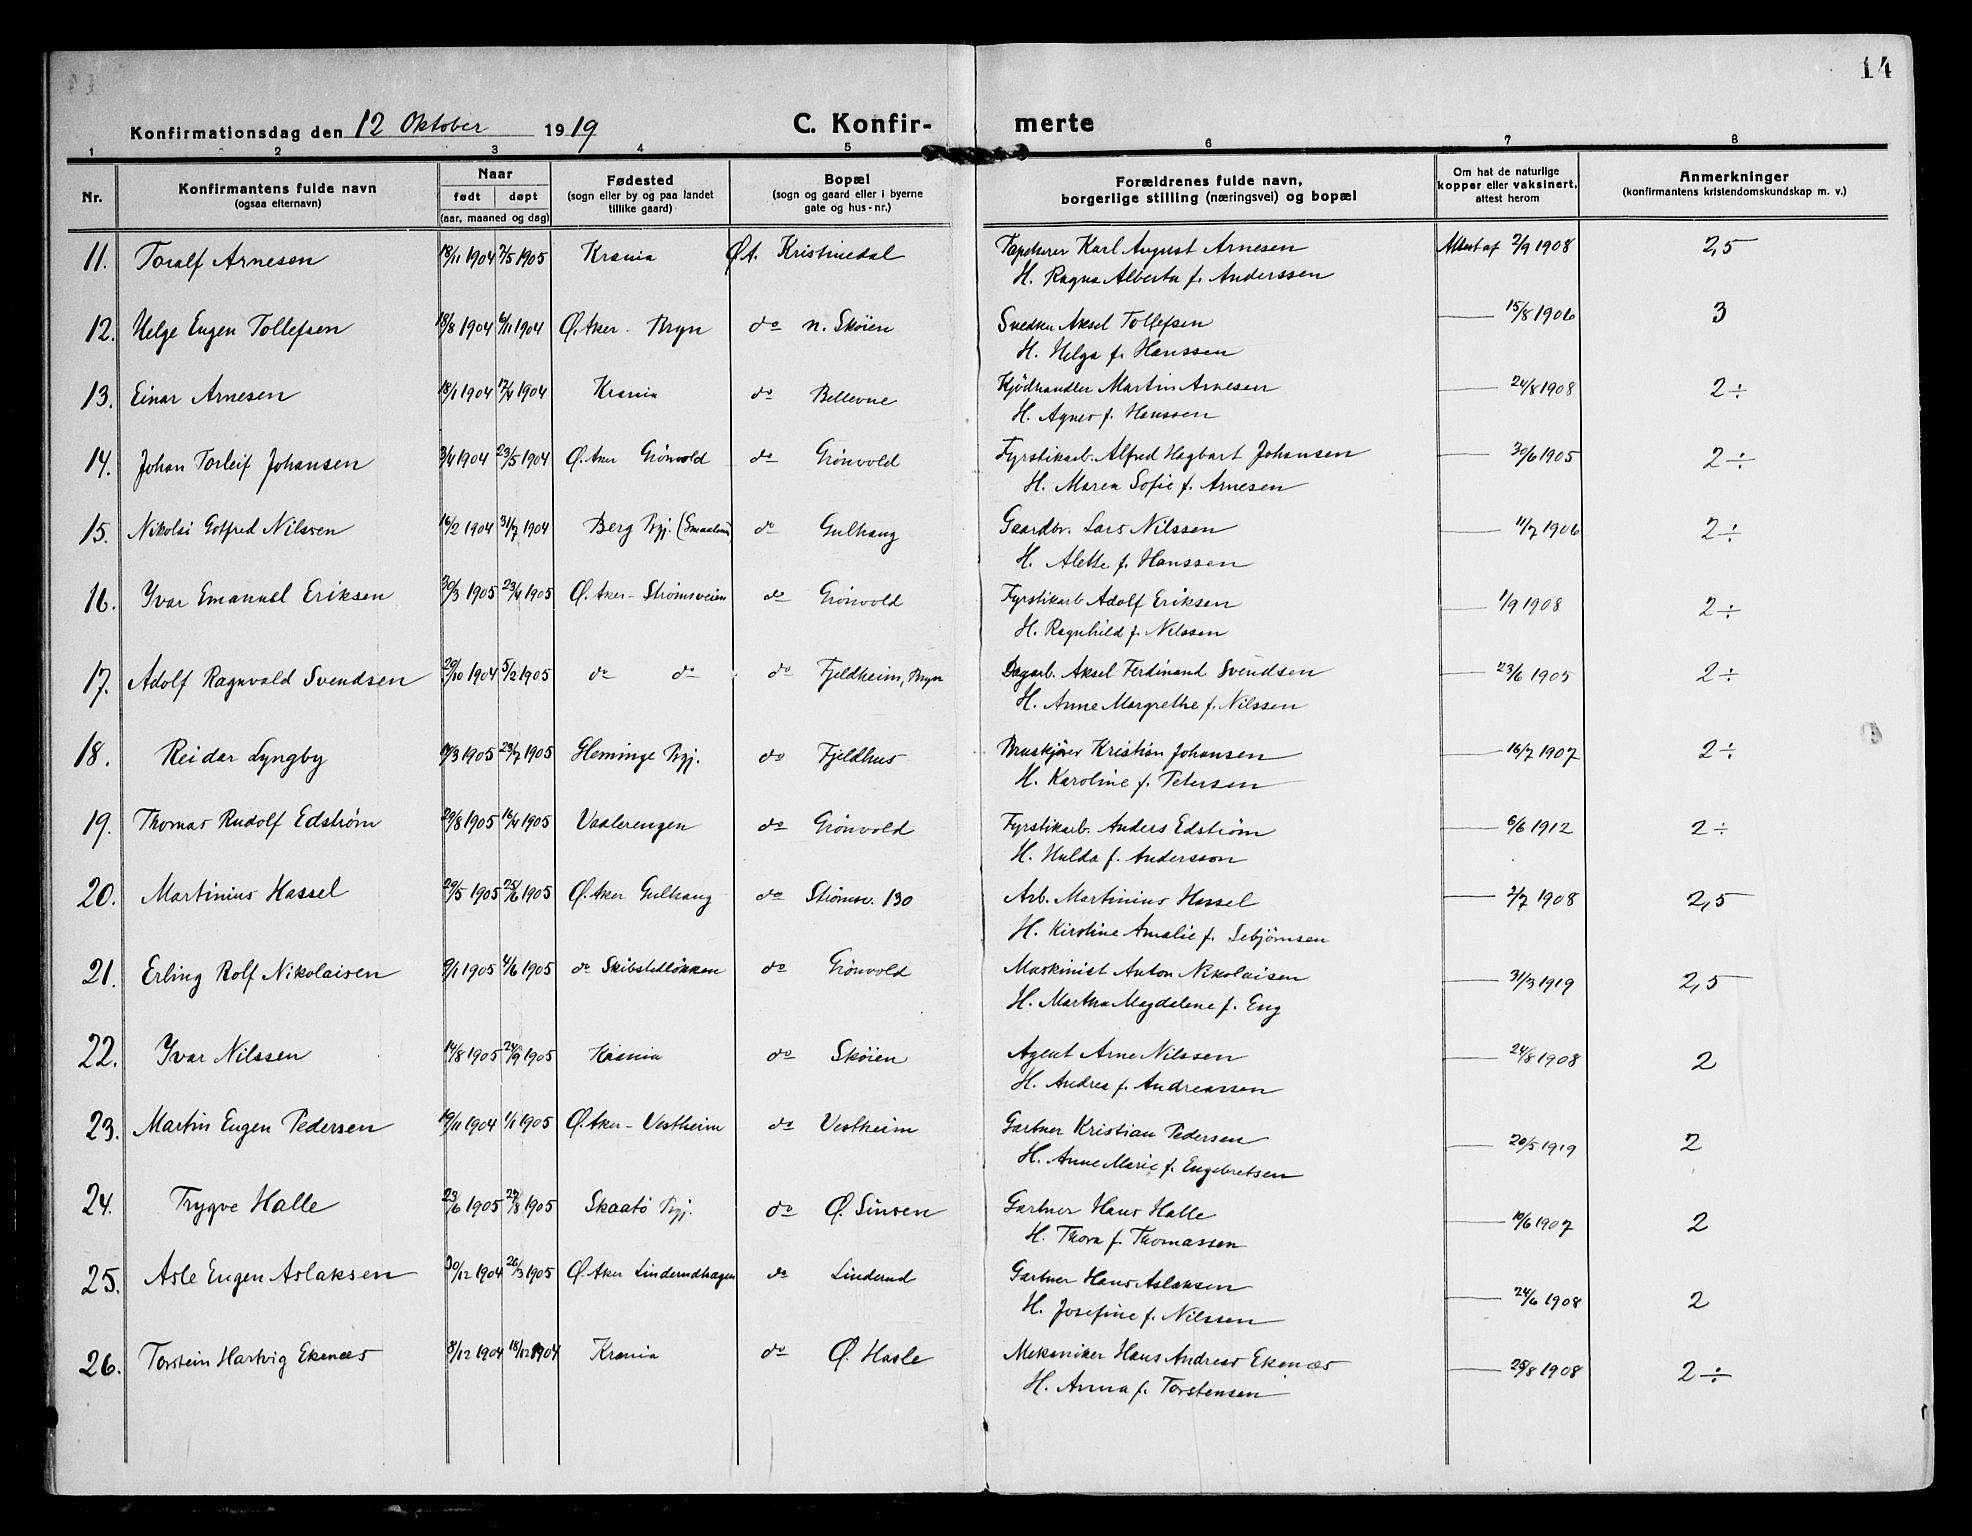 14
Konfirmationsdag den 12 Oktober 1919 C. Konfir- merte
1 2 3 4 5 6 7 8
Nr. Konfirmantens fulde navn (ogsaa efternavn) Naar født døpt (aar, maaned og dag) Fødested (sogn eller by og paa landet tillike gaard) Bopæl (sogn og gaard eller i byerne gate og hus-nr.) Forældrenes fulde navn, borgerlige stilling (næringsvei) og bopæl Om hat de naturlige kopper eller vaksinert, attest herom Anmerkninger (konfirmantens kristendomskundskap m. v.)
11. Toralf Arnesen 18/11 1904 7/5 1905 Krania Øt. Kristinedal Tapetserer Karl August Arnesen Attest af 2/9 1908 2,5
H. Ragna Alberta f. Anderssen
12. Helge Eugen Tollefsen 18/8 1904 6/11 1904 Ø. Aker - Bryn do n. Skøien Snedker Aksel Tollefsen 15/8 1906 3
H. Helga f. Hanssen
13. Einar Arnesen 18/1 1904 17/4 1904 Krania do Bellevue Kjødhandler Martin Arnesen 24/8 1908 2÷
H. Agnes f. Hanssen
14. Johan Torleif Johansen 3/4 1904 23/5 1904 Ø. Aker Grønvold do Grønvold Fyrstikarb. Alfred Hagbart Johansen 30/6 1905 2÷
H. Maren Sofie f. Arnesen
15. Nikolai Gotfred Nilssen 16/2 1904 31/7 1904 Berg Pgj. (Smaalene) do Gulhaug Gaardbr. Lars Nilssen 11/7 1906 2÷
H. Alette f. Hanssen
16. Yvar Emanuel Eriksen 30/3 1905 23/4 1905 Ø. Aker - Strømsveien do Grønvold Fyrstikarb Adolf Eriksen 1/9 1908 2÷
H. Ragnhild f. Nilssen
17. Adolf Ragnvald Svendsen 29/10 1904 5/2 1905 do do do Fjeldheim, Bryn Dagarb. Aksel Ferdinand Svendsen 23/6 1905 2÷
H. Anne Margrethe f. Nilssen
18. Reidar Lyngby 11/3 1905 23/7 1905 Gleminge Pgj. do Fjeldhus Bruskjører Kristian Johansen 16/7 1907 2÷
H. Karoline f. Petersen
19. Thomas Rudolf Edstrøm 29/8 1905 16/4 1905 Vaalerengen do Grønvold Fyrstikarb. Anders Edstrøm 6/6 1912 2÷
H. Hulda f. Andersson
20. Martinius Hassel 29/5 1905 25/6 1905 Ø. Aker Gulhaug do Strømsv. 130 Arb. Martinius Hassel 2/7 1908 2,5
H. Kirstine Amalie f. Sebjørnsen
21. Erling Rolf Nikolaisen 9/1 1905 4/6 1905 do Skibstedløkken do Grønvold Maskinist Anton Nikolaisen 31/3 1919 2,5
H. Martha Magdalene f. Eng
22. Yvar Nilssen 14/8 1905 24/9 1905 Krania do Skøien Agent Arne Nilssen 24/8 1908 2
H. Andrea f. Andreassen
23. Martin Eugen Pedersen 19/11 1904 1/1 1905 Ø. Aker - Vestheim do Vestheim Gartner Kristian Pedersen 20/5 1919 2
H. Anne Marie f. Engebretsen
24. Trygve Halle 23/6 1905 27/8 1905 Skaatø Pgj. do Ø. Sinsen Gartner Hans Halle 10/6 1907 2
H. Thora f. Thomassen
25. Asle Eugen Aslaksen 30/12 1904 26/3 1905 Ø. Aker Linderudhagen do Linderud Gartner Hans Aslaksen 24/6 1908 2
H. Josefine f. Nilssen
26. Torstein Hartvig Ekenæs 8/12 1904 18/12 1904 Krania do Ø. Hasle Mekaniker Hans Andreas Ekenæs 25/8 1908 2÷
H. Anna f. Torstensen